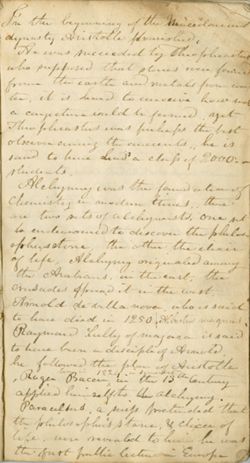 In the beginning of the Macedonian
dynasty Aristotle flourished.
He was succeeded by Theophrastus
who supposed that stones were formed
from the earth and metals from wa-
ter, it is hard to conceive how such
a conjecture could be formed, yet
Theophrastus was perhaps the best
observer among the ancients, he is
said to have had a class of 2000
students.
Alchymy was the foundation of
Chemistry in modern times, there
are two sets of alchymists, one set
endeavoured to discover the philos-
opher stone, the other the elixir
of life, Alchymy originated among
the Arabians, in the east, the
crusades spread it in the west.
Arnold de villa nova who is said
to have died in 1250,
Raymund Lully of majorca is said
to have been a disciple of Arnold,
he followed the plan of Aristotle
Roger Bacon, in the 13th century
applied himself to Alchymy.
Paracelsus, a pretended that
the philosophers stone, & elixir of
life, were revealed to him, he was
the first public lecturer in Europe